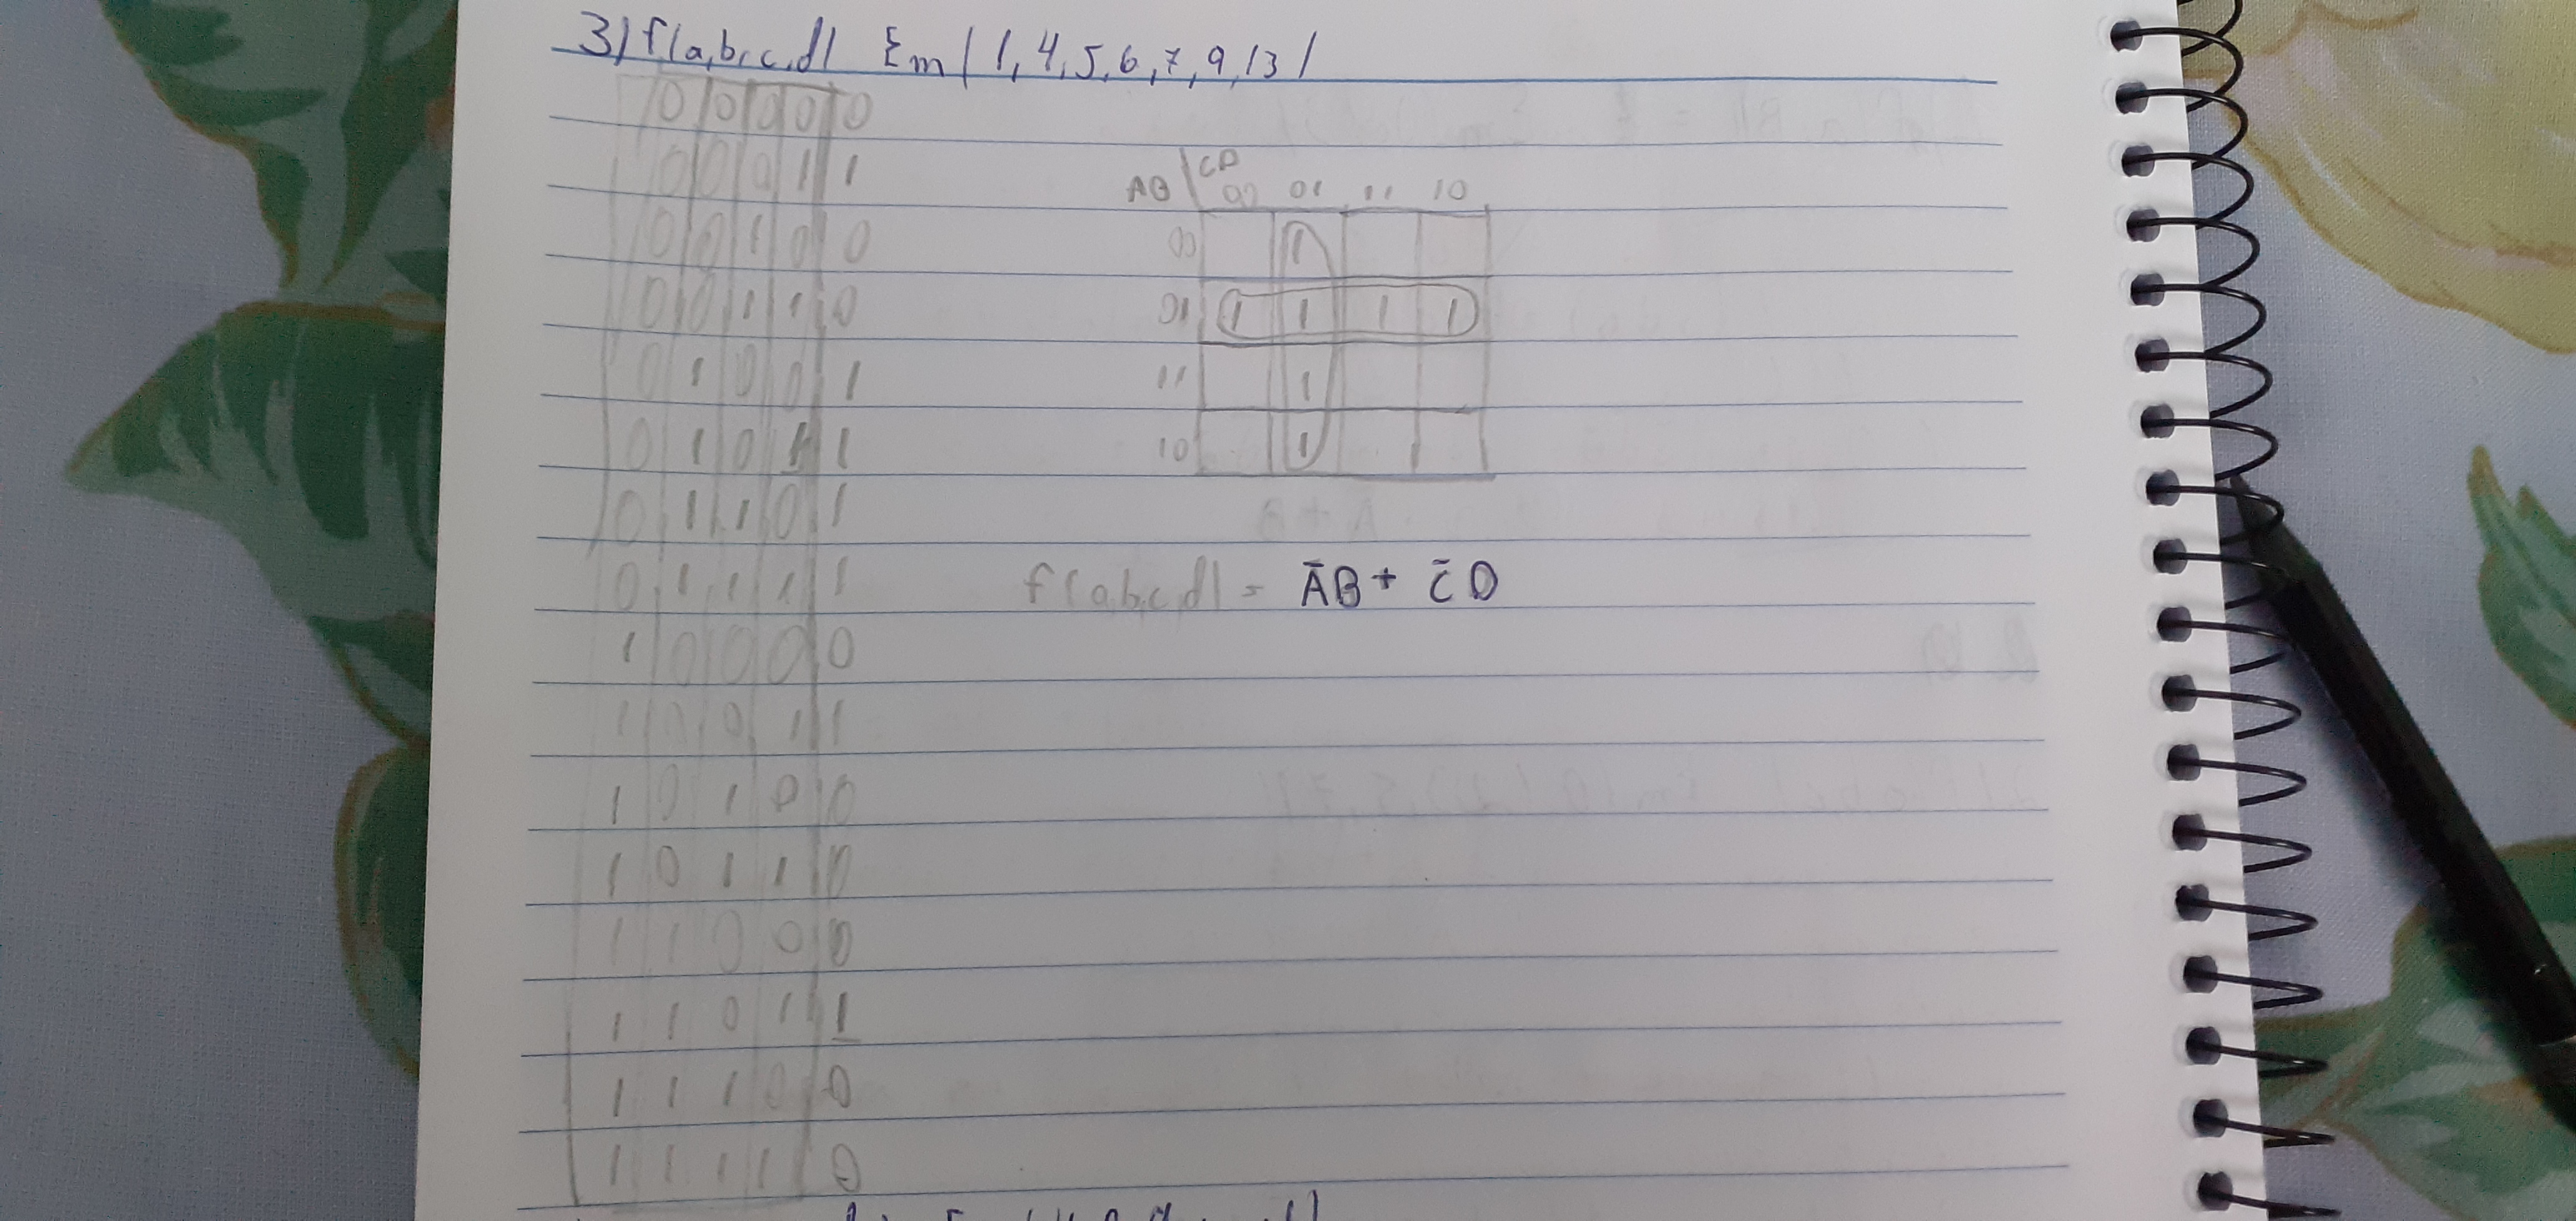 3) f(a,b,c,d) Σm(1,4,5,6,7,9,13)
0 0 0 0 0
0 0 0 1 1
0 0 1 0 0
0 0 1 1 0
0 1 0 0 1
0 1 0 1 1
0 1 1 0 1
0 1 1 1 1
1 0 0 0 0
1 0 0 1 1
1 0 1 0 0
1 0 1 1 0
1 1 0 0 0
1 1 0 1 1
1 1 1 0 0
1 1 1 1 0
AB \ CD
00 01 11 10
00 1
01 1 1 1 1
11 1
10 1
f(a,b,c,d) = A̅B + C̅D